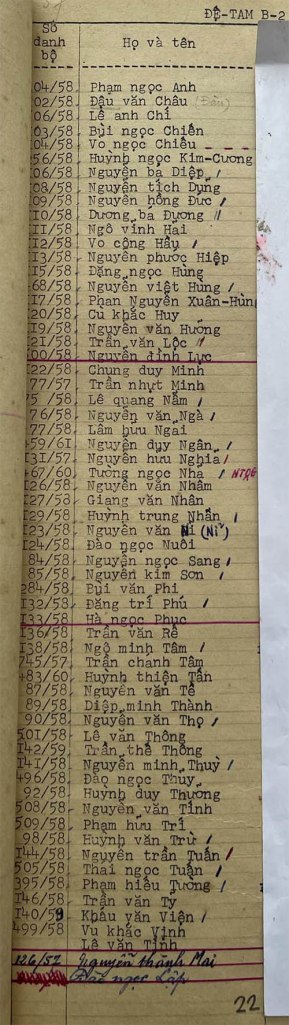 ĐỆ-TAM B-2
Số
danh
bộ
Họ và tên
04/58 Phạm ngọc Anh
02/58 Đậu văn Châu (Đàn)
06/58 Lê anh Chí
03/58 Bùi ngọc Chiến
04/58 Vo ngọc Chiêu
56/58 Huỳnh ngọc Kim-Cương
06/58 Nguyễn bá Diệp
08/58 Nguyễn tích Dụng
09/58 Nguyễn hồng Đức
I0/58 Dương bá Đương
II/58 Ngô vĩnh Hai
I2/58 Vo công Hầu
I3/58 Nguyễn phước Hiệp
I5/58 Đặng ngọc Hùng
68/58 Nguyễn việt Hùng
I7/58 Phan Nguyễn Xuân-Hùn
20/58 Cù khắc Huy
I9/58 Nguyễn văn Hương
2I/58 Trần văn Lộc
00/58 Nguyễn đình Lực
22/58 Chung duy Minh
77/57 Trần nhựt Minh
75/58 Lê quang Nẫm
76/58 Nguyễn văn Ngà
77/58 Lâm hưu Ngai
59/6I Nguyễn duy Ngân
3I/57 Nguyễn hưu Nghĩa
67/60 Tường ngọc Nha NTQG
26/58 Nguyễn văn Nhâm
27/58 Giang văn Nhân
I29/58 Huỳnh trung Nhẫn
I23/58 Nguyễn văn Ni (Nỉ)
I24/58 Đào ngọc Nuôi
84/58 Nguyễn ngọc Sang
85/58 Nguyễn kim Sơn
284/58 Bùi văn Phi
I32/58 Đăng trí Phú
I33/58 Hà ngọc Phục
I36/58 Trần văn Rê
I38/58 Ngô minh Tâm
745/57 Trần chanh Tâm
83/60 Huỳnh thiện Tân
87/58 Nguyễn văn Tê
89/58 Diệp minh Thành
90/58 Nguyễn văn Thọ
50I/58 Lê văn Thông
I42/59 Trần thế Thông
I4I/58 Nguyễn minh Thuỳ
496/58 Đào ngọc Thuỵ
92/58 Huỳnh duy Thương
508/58 Nguyễn văn Tính
509/58 Phạm hưu Trí
98/58 Huỳnh văn Trừ
I44/58 Nguyễn trần Tuấn
505/58 Thai ngọc Tuấn
395/58 Phạm hiếu Tường
I46/58 Trần văn Tý
I40/59 Khấu văn Viện
499/58 Vu khắc Vịnh
Lê văn Tịnh
126/57 Nguyễn thành Mai
Đào ngọc Lập
22